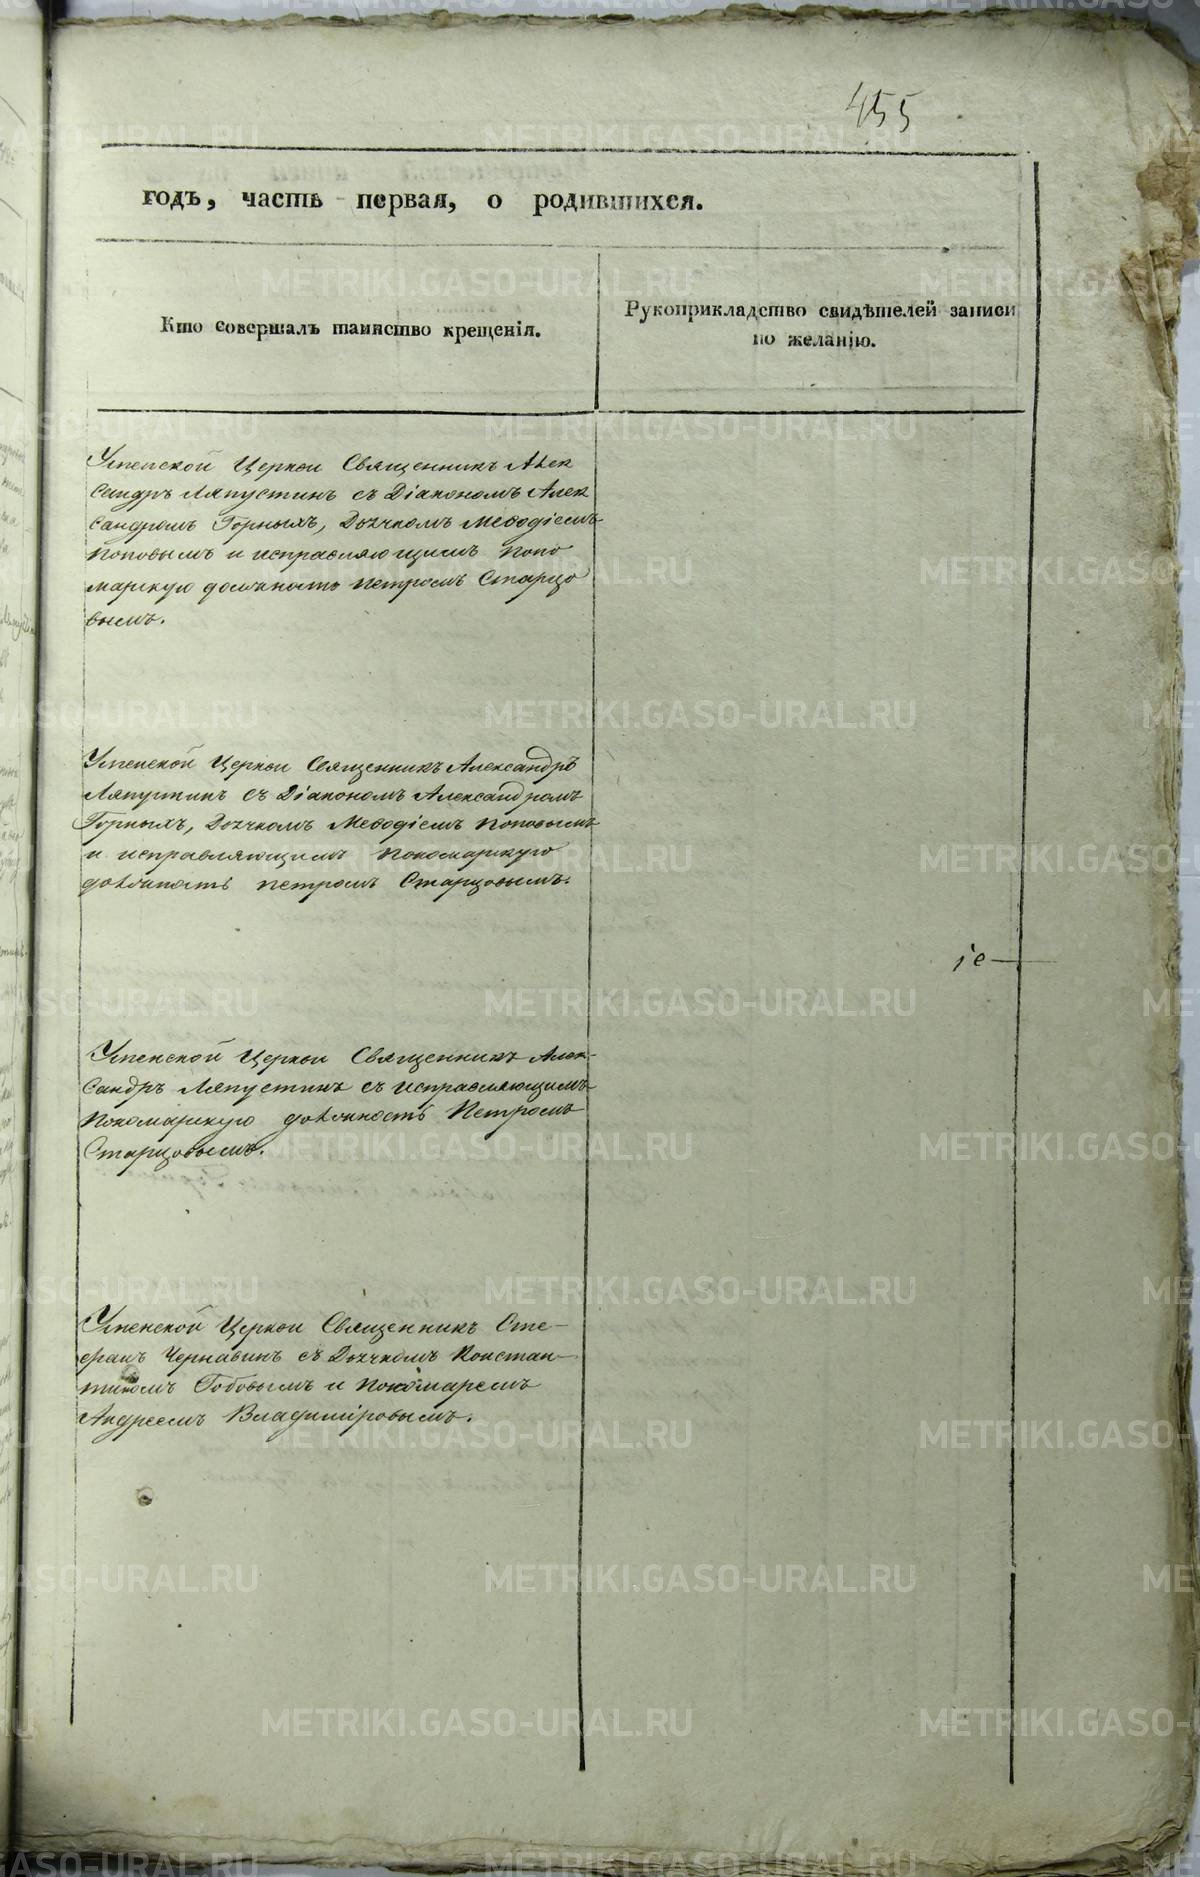 455
годъ, часть первая, о родившихся.
Кто совершалъ таинство крещенія.
Рукоприкладство свидѣтелей записи
по желанію.
Успенской Церкви Священникъ Алек
сандръ Ляпустинъ съ Діакономъ Алек
сандромъ Горныхъ, Дьячкомъ Меѳодіемъ
Поповымъ и исправляющимъ поно
марскую должность Петромъ Старцо
вымъ.
Успенской Церкви Священникъ Александръ
Ляпустинъ съ Діакономъ Александромъ
Горныхъ, Дьячкомъ Меѳодіемъ Поповымъ
и исправляющимъ пономарскую
должность Петромъ Старцовымъ.
Успенской Церкви Священникъ Алек-
сандръ Ляпустинъ съ исправляющимъ
пономарскую должность Петромъ
Старцовымъ.
Успенской Церкви Священникъ Сте-
фанъ Чернавинъ съ Дьячкомъ Констан-
тиномъ Гобовымъ и Пономаремъ
Андреемъ Владиміровымъ.
METRIKI.GASO-URAL.RU